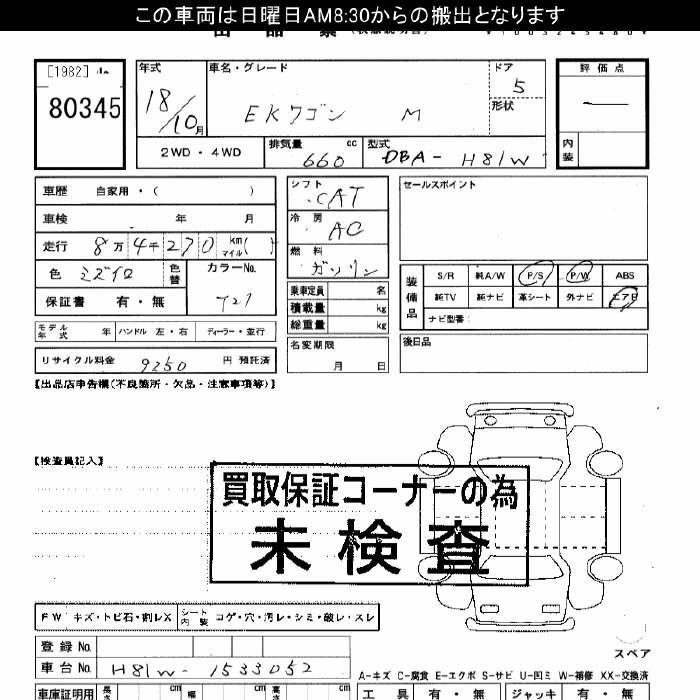 この車両は日曜日AM8:30からの搬出となります
[1982]
80345
年式
車名・グレード
ドア
評価点
18/10月
EKワゴン M
5
形状
2WD・4WD
排気量 cc
660
型式
DBA-H81W
内装
車歴 自家用・( )
車検 年 月
走行 8万4千270km マイル( )
色 ミズイロ
色替
カラーNo.
T27
保証書 有・無
シフト
CAT
冷房
AC
燃料
ガソリン
乗車定員 名
積載量 kg
総重量 kg
セールスポイント
装備品
S/R 純A/W P/S P/W ABS
純TV 純ナビ 革シート 外ナビ エアB
ナビ型番:
モデル年式 年 ハンドル 左・右 ディーラー・並行
リサイクル料金 9250 円 預託済
名変期限
月 日
後日品
【出品店申告欄(不良箇所・欠品・注意事項等)】
【検査員記入】
買取保証コーナーの為
未検査
FW キズ・トビ石・割レX
シート内装 コゲ・穴・汚レ・シミ・破レ・スレ
登録No.
車台No. H81W-1533052
スペア
A-キズ C-腐食 E-エクボ S-サビ U-凹ミ W-補修 XX-交換済
車庫証明用
長さ cm
幅 cm
高さ cm
工具 有・無
ジャッキ 有・無